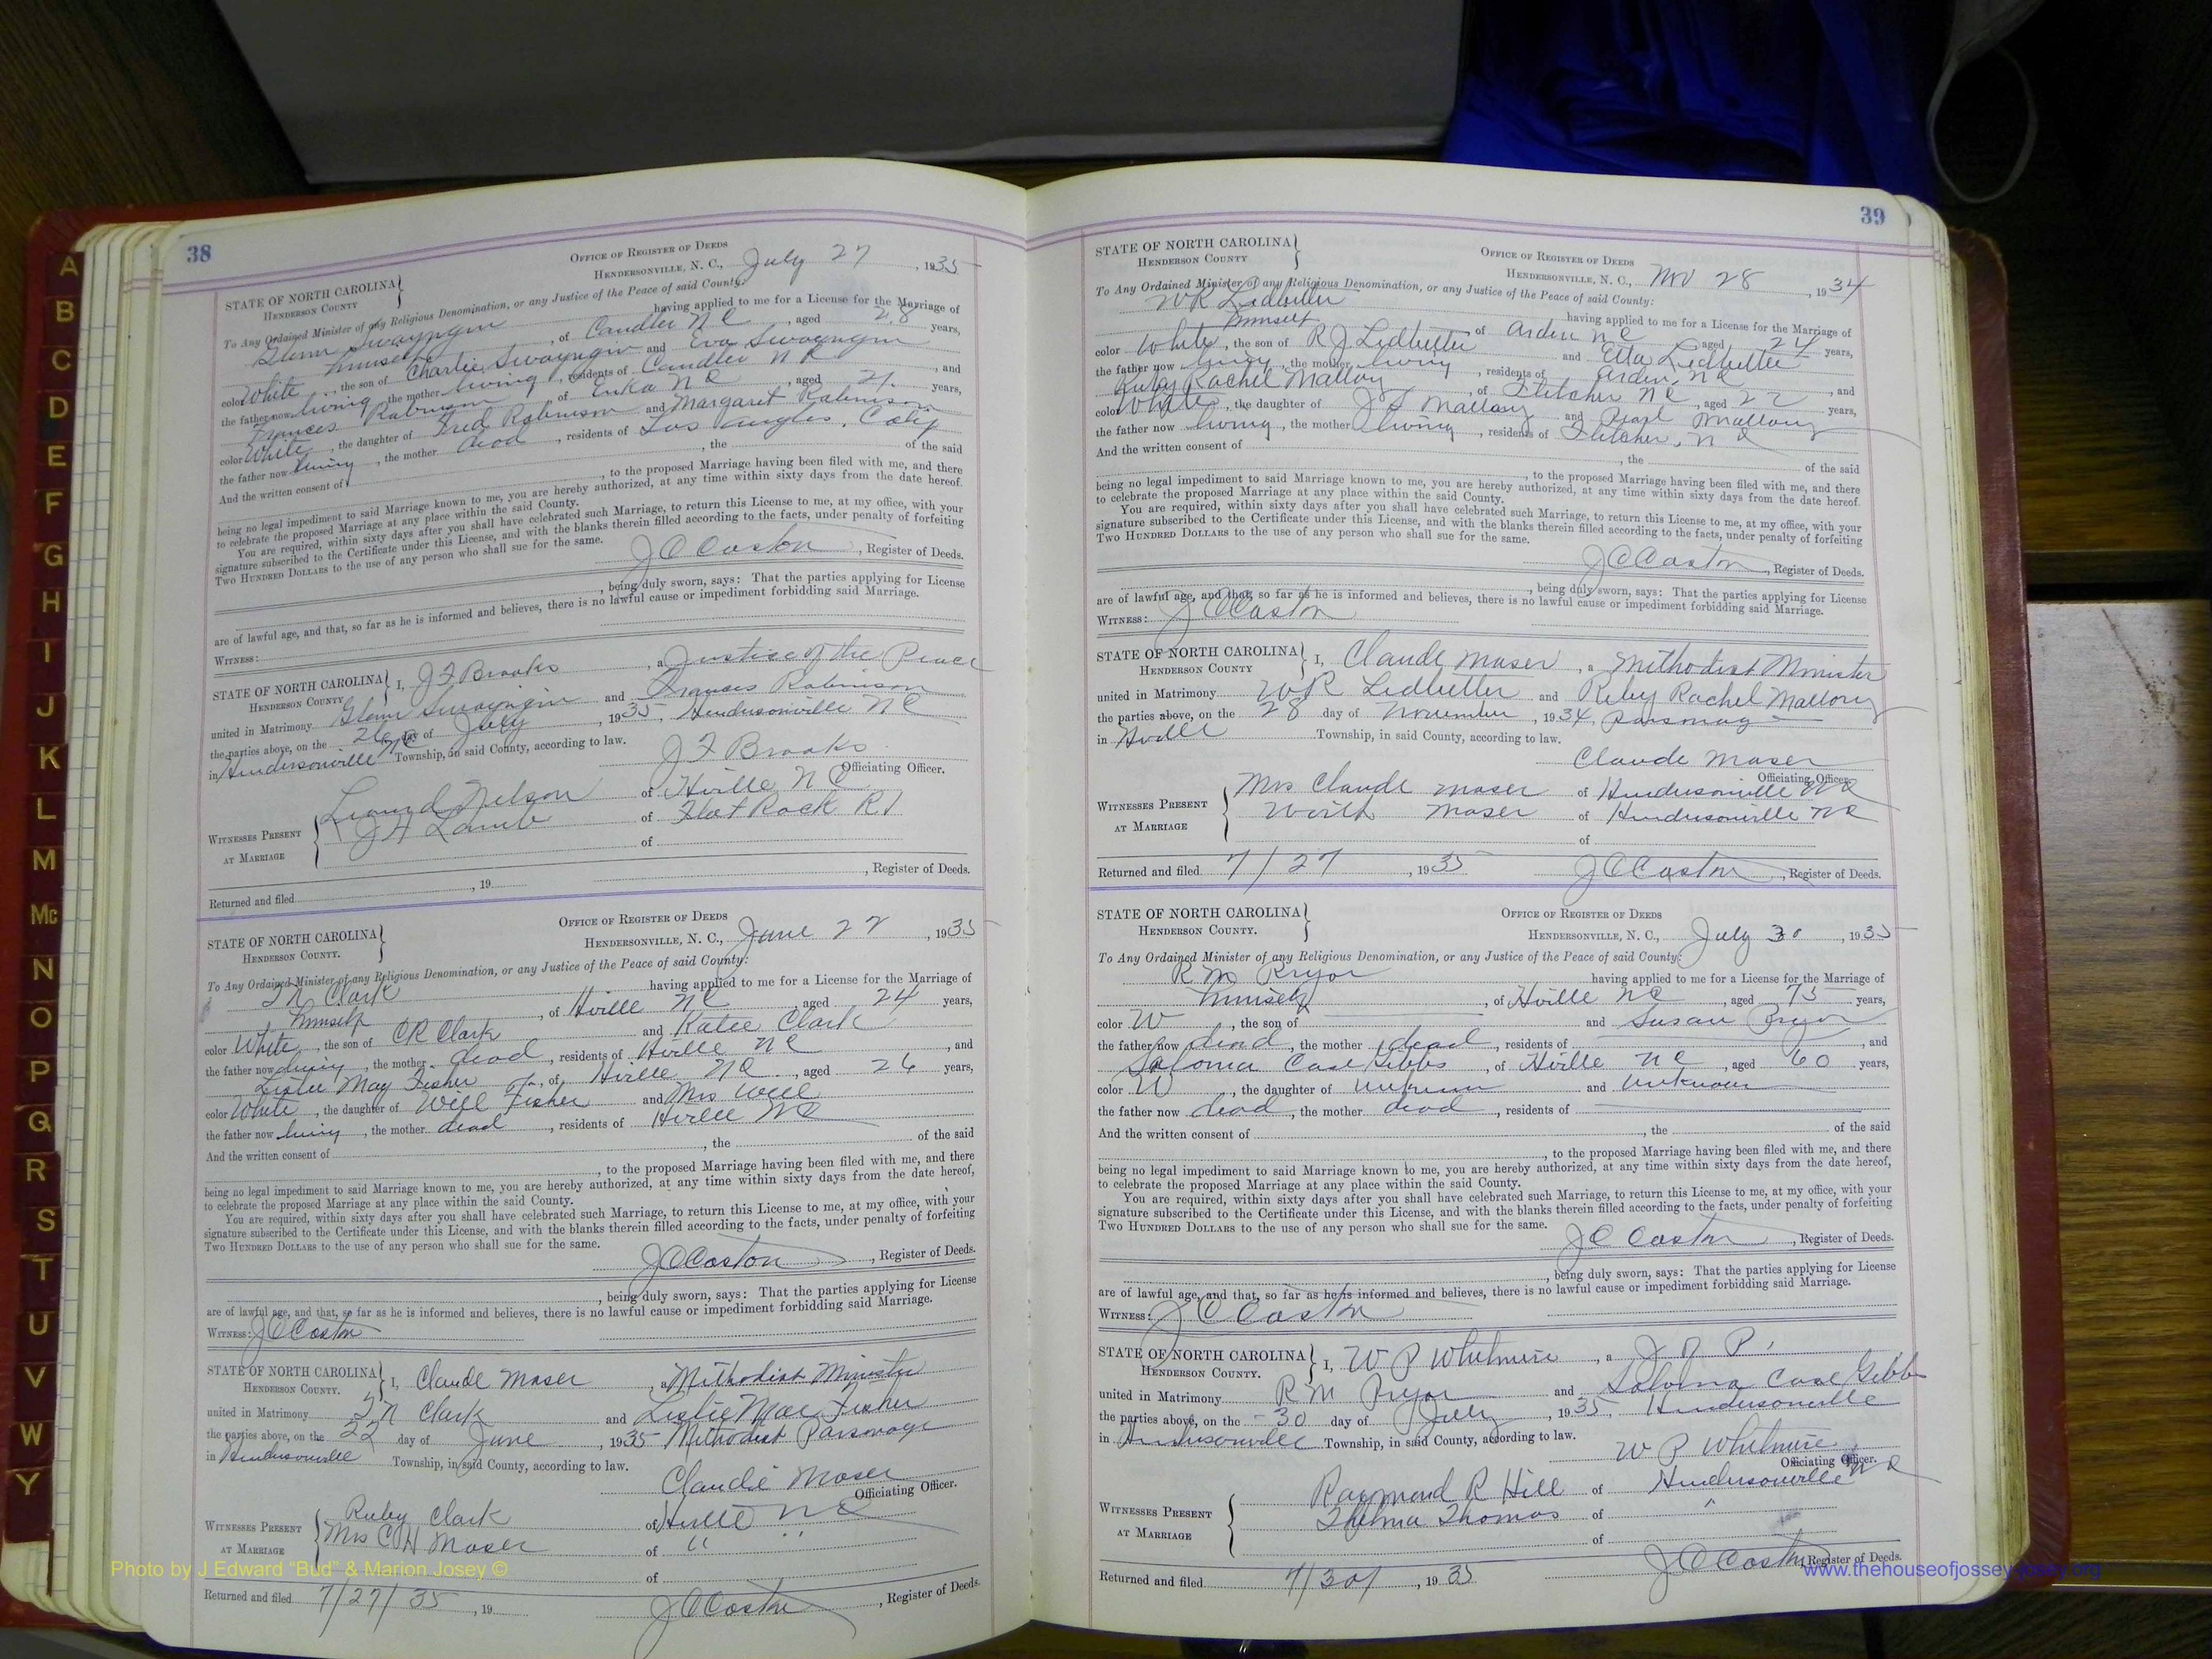 A
B
C
D
E
F
G
H
I
J
K
L
M
Mc
N
O
P
Q
R
S
T
U
V
W
Y
38
OFFICE OF REGISTER OF DEEDS
STATE OF NORTH CAROLINA
HENDERSON COUNTY
HENDERSONVILLE, N. C., July 27, 1935
To Any Ordained Minister of any Religious Denomination, or any Justice of the Peace of said County:
Glenn Swayngim having applied to me for a License for the Marriage of
himself, of Candler N C, aged 28 years,
color White, the son of Charlie Swayngim and Eva Swayngim
the father now living, the mother living, residents of Candler N C, and
Frances Robinson of Enka N C, aged 21 years,
color White, the daughter of Fred Robinson and Margaret Robinson
the father now living, the mother dead, residents of Los Angles, Calif
And the written consent of, the of the said
, to the proposed Marriage having been filed with me, and there
being no legal impediment to said Marriage known to me, you are hereby authorized, at any time within sixty days from the date hereof,
to celebrate the proposed Marriage at any place within the said County.
You are required, within sixty days after you shall have celebrated such Marriage, to return this License to me, at my office, with your
signature subscribed to the Certificate under this License, and with the blanks therein filled according to the facts, under penalty of forfeiting
TWO HUNDRED DOLLARS to the use of any person who shall sue for the same.
J C Coston, Register of Deeds.
, being duly sworn, says: That the parties applying for License
are of lawful age, and that, so far as he is informed and believes, there is no lawful cause or impediment forbidding said Marriage.
WITNESS:
STATE OF NORTH CAROLINA
HENDERSON COUNTY
I, J F Brooks, a Justice of the Peace
united in Matrimony Glenn Swayngim and Frances Robinson
the parties above, on the 26 day of July, 1935, Hendersonville N C
in Hendersonville NC Township, in said County, according to law.
J F Brooks
Officiating Officer.
WITNESSES PRESENT
AT MARRIAGE
Nelson of Hville N C
Lamb of Flat Rock R1
of
Returned and filed, 19, Register of Deeds.
OFFICE OF REGISTER OF DEEDS
STATE OF NORTH CAROLINA
HENDERSON COUNTY.
HENDERSONVILLE, N. C., June 22, 1935
To Any Ordained Minister of any Religious Denomination, or any Justice of the Peace of said County:
Clark having applied to me for a License for the Marriage of
himself, of Hville N C, aged 24 years,
color White, the son of CR Clark and Katee Clark
the father now living, the mother dead, residents of Hville N C, and
Leslie May Fisher of, of Hville N C, aged 26 years,
color White, the daughter of Will Fisher and Mrs Will
the father now living, the mother dead, residents of Hville N C
And the written consent of, the of the said
, to the proposed Marriage having been filed with me, and there
being no legal impediment to said Marriage known to me, you are hereby authorized, at any time within sixty days from the date hereof,
to celebrate the proposed Marriage at any place within the said County.
You are required, within sixty days after you shall have celebrated such Marriage, to return this License to me, at my office, with your
signature subscribed to the Certificate under this License, and with the blanks therein filled according to the facts, under penalty of forfeiting
TWO HUNDRED DOLLARS to the use of any person who shall sue for the same.
J C Coston, Register of Deeds.
, being duly sworn, says: That the parties applying for License
are of lawful age, and that, so far as he is informed and believes, there is no lawful cause or impediment forbidding said Marriage.
WITNESS: J C Coston
STATE OF NORTH CAROLINA
HENDERSON COUNTY.
I, Claude Moser a Methodist Minister
united in Matrimony Clark and Leslie Mae Fisher
the parties above, on the 22 day of June, 1935 Methodist Parsonage
in Hendersonville Township, in said County, according to law.
Claude Moser
Officiating Officer.
WITNESSES PRESENT
AT MARRIAGE
Ruby Clark of Hville N C
Mrs C H Moser of " "
of
Returned and filed 7/27/35, 19 J C Coston, Register of Deeds.
39
STATE OF NORTH CAROLINA
HENDERSON COUNTY
OFFICE OF REGISTER OF DEEDS
HENDERSONVILLE, N. C., Nov 28, 1934
To Any Ordained Minister of any Religious Denomination, or any Justice of the Peace of said County:
W R Ledbetter having applied to me for a License for the Marriage of
himself of Arden N C aged 24 years,
color White, the son of R J Ledbetter and Etta Ledbetter
the father now living, the mother living, residents of Arden, N C, and
Ruby Rachel Mallory, of Fletcher N C, aged 22 years,
color White, the daughter of Mallory and Pearl Mallory
the father now living, the mother living, residents of Fletcher, N C
And the written consent of, the of the said
, to the proposed Marriage having been filed with me, and there
being no legal impediment to said Marriage known to me, you are hereby authorized, at any time within sixty days from the date hereof.
to celebrate the proposed Marriage at any place within the said County.
You are required, within sixty days after you shall have celebrated such Marriage, to return this License to me, at my office, with your
signature subscribed to the Certificate under this License, and with the blanks therein filled according to the facts, under penalty of forfeiting
TWO HUNDRED DOLLARS to the use of any person who shall sue for the same.
J C Coston, Register of Deeds.
, being duly sworn, says: That the parties applying for License
are of lawful age, and that, so far as he is informed and believes, there is no lawful cause or impediment forbidding said Marriage.
WITNESS: J C Coston
STATE OF NORTH CAROLINA
HENDERSON COUNTY
I, Claude Moser, a Methodist Minister
united in Matrimony W R Ledbetter and Ruby Rachel Mallory
the parties above, on the 28 day of November, 1934, Parsonage
in Hville Township, in said County, according to law.
Claude Moser
Officiating Officer.
WITNESSES PRESENT
AT MARRIAGE
Mrs Claude Moser of Hendersonville N C
Worth Moser of Hendersonville N C
of
Returned and filed 7/27, 1935 J C Coston, Register of Deeds.
STATE OF NORTH CAROLINA
HENDERSON COUNTY.
OFFICE OF REGISTER OF DEEDS
HENDERSONVILLE, N. C., July 30, 1935
To Any Ordained Minister of any Religious Denomination, or any Justice of the Peace of said County:
R M Pryor having applied to me for a License for the Marriage of
himself, of Hville N C, aged 75 years,
color W, the son of and Susan Pryor
the father now dead, the mother dead, residents of, and
Saloma Case Gibbs, of Hville N C, aged 60 years,
color W, the daughter of Unknown and Unknown
the father now dead, the mother dead, residents of
And the written consent of, the of the said
, to the proposed Marriage having been filed with me, and there
being no legal impediment to said Marriage known to me, you are hereby authorized, at any time within sixty days from the date hereof,
to celebrate the proposed Marriage at any place within the said County.
You are required, within sixty days after you shall have celebrated such Marriage, to return this License to me, at my office, with your
signature subscribed to the Certificate under this License, and with the blanks therein filled according to the facts, under penalty of forfeiting
TWO HUNDRED DOLLARS to the use of any person who shall sue for the same.
J C Coston, Register of Deeds.
, being duly sworn, says: That the parties applying for License
are of lawful age, and that, so far as he is informed and believes, there is no lawful cause or impediment forbidding said Marriage.
WITNESS: J C Coston
STATE OF NORTH CAROLINA
HENDERSON COUNTY.
I, W P Whitmire, a J P
united in Matrimony R M Pryor and Saloma Case Gibbs
the parties above, on the 30 day of July, 1935, Hendersonville
in Hendersonville Township, in said County, according to law.
W P Whitmire
Officiating Officer.
WITNESSES PRESENT
AT MARRIAGE
Raymond R Hill of Hendersonville N C
Thelma Thomas of "
of
Returned and filed 7/30/, 1935 J C Coston Register of Deeds.
Photo by J Edward "Bud" & Marion Josey ©
www.thehouseofjossey-josey.org